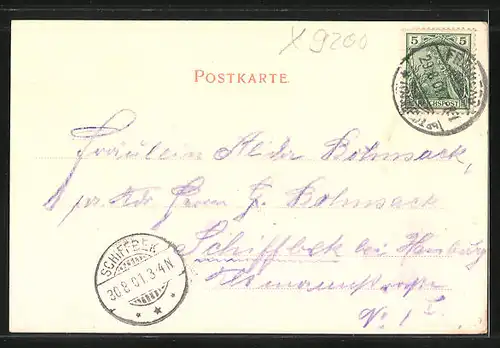 X 9200
POSTKARTE.
5 5
REICHSPOST
29.8.01
Fräulein Alida Bohmsack,
pr. Adr. Herrn J. Bohmsack
Schiffbek bei Hamburg
No. 1 I.
SCHIFFBEK
30.8.01.3-4N
* * *